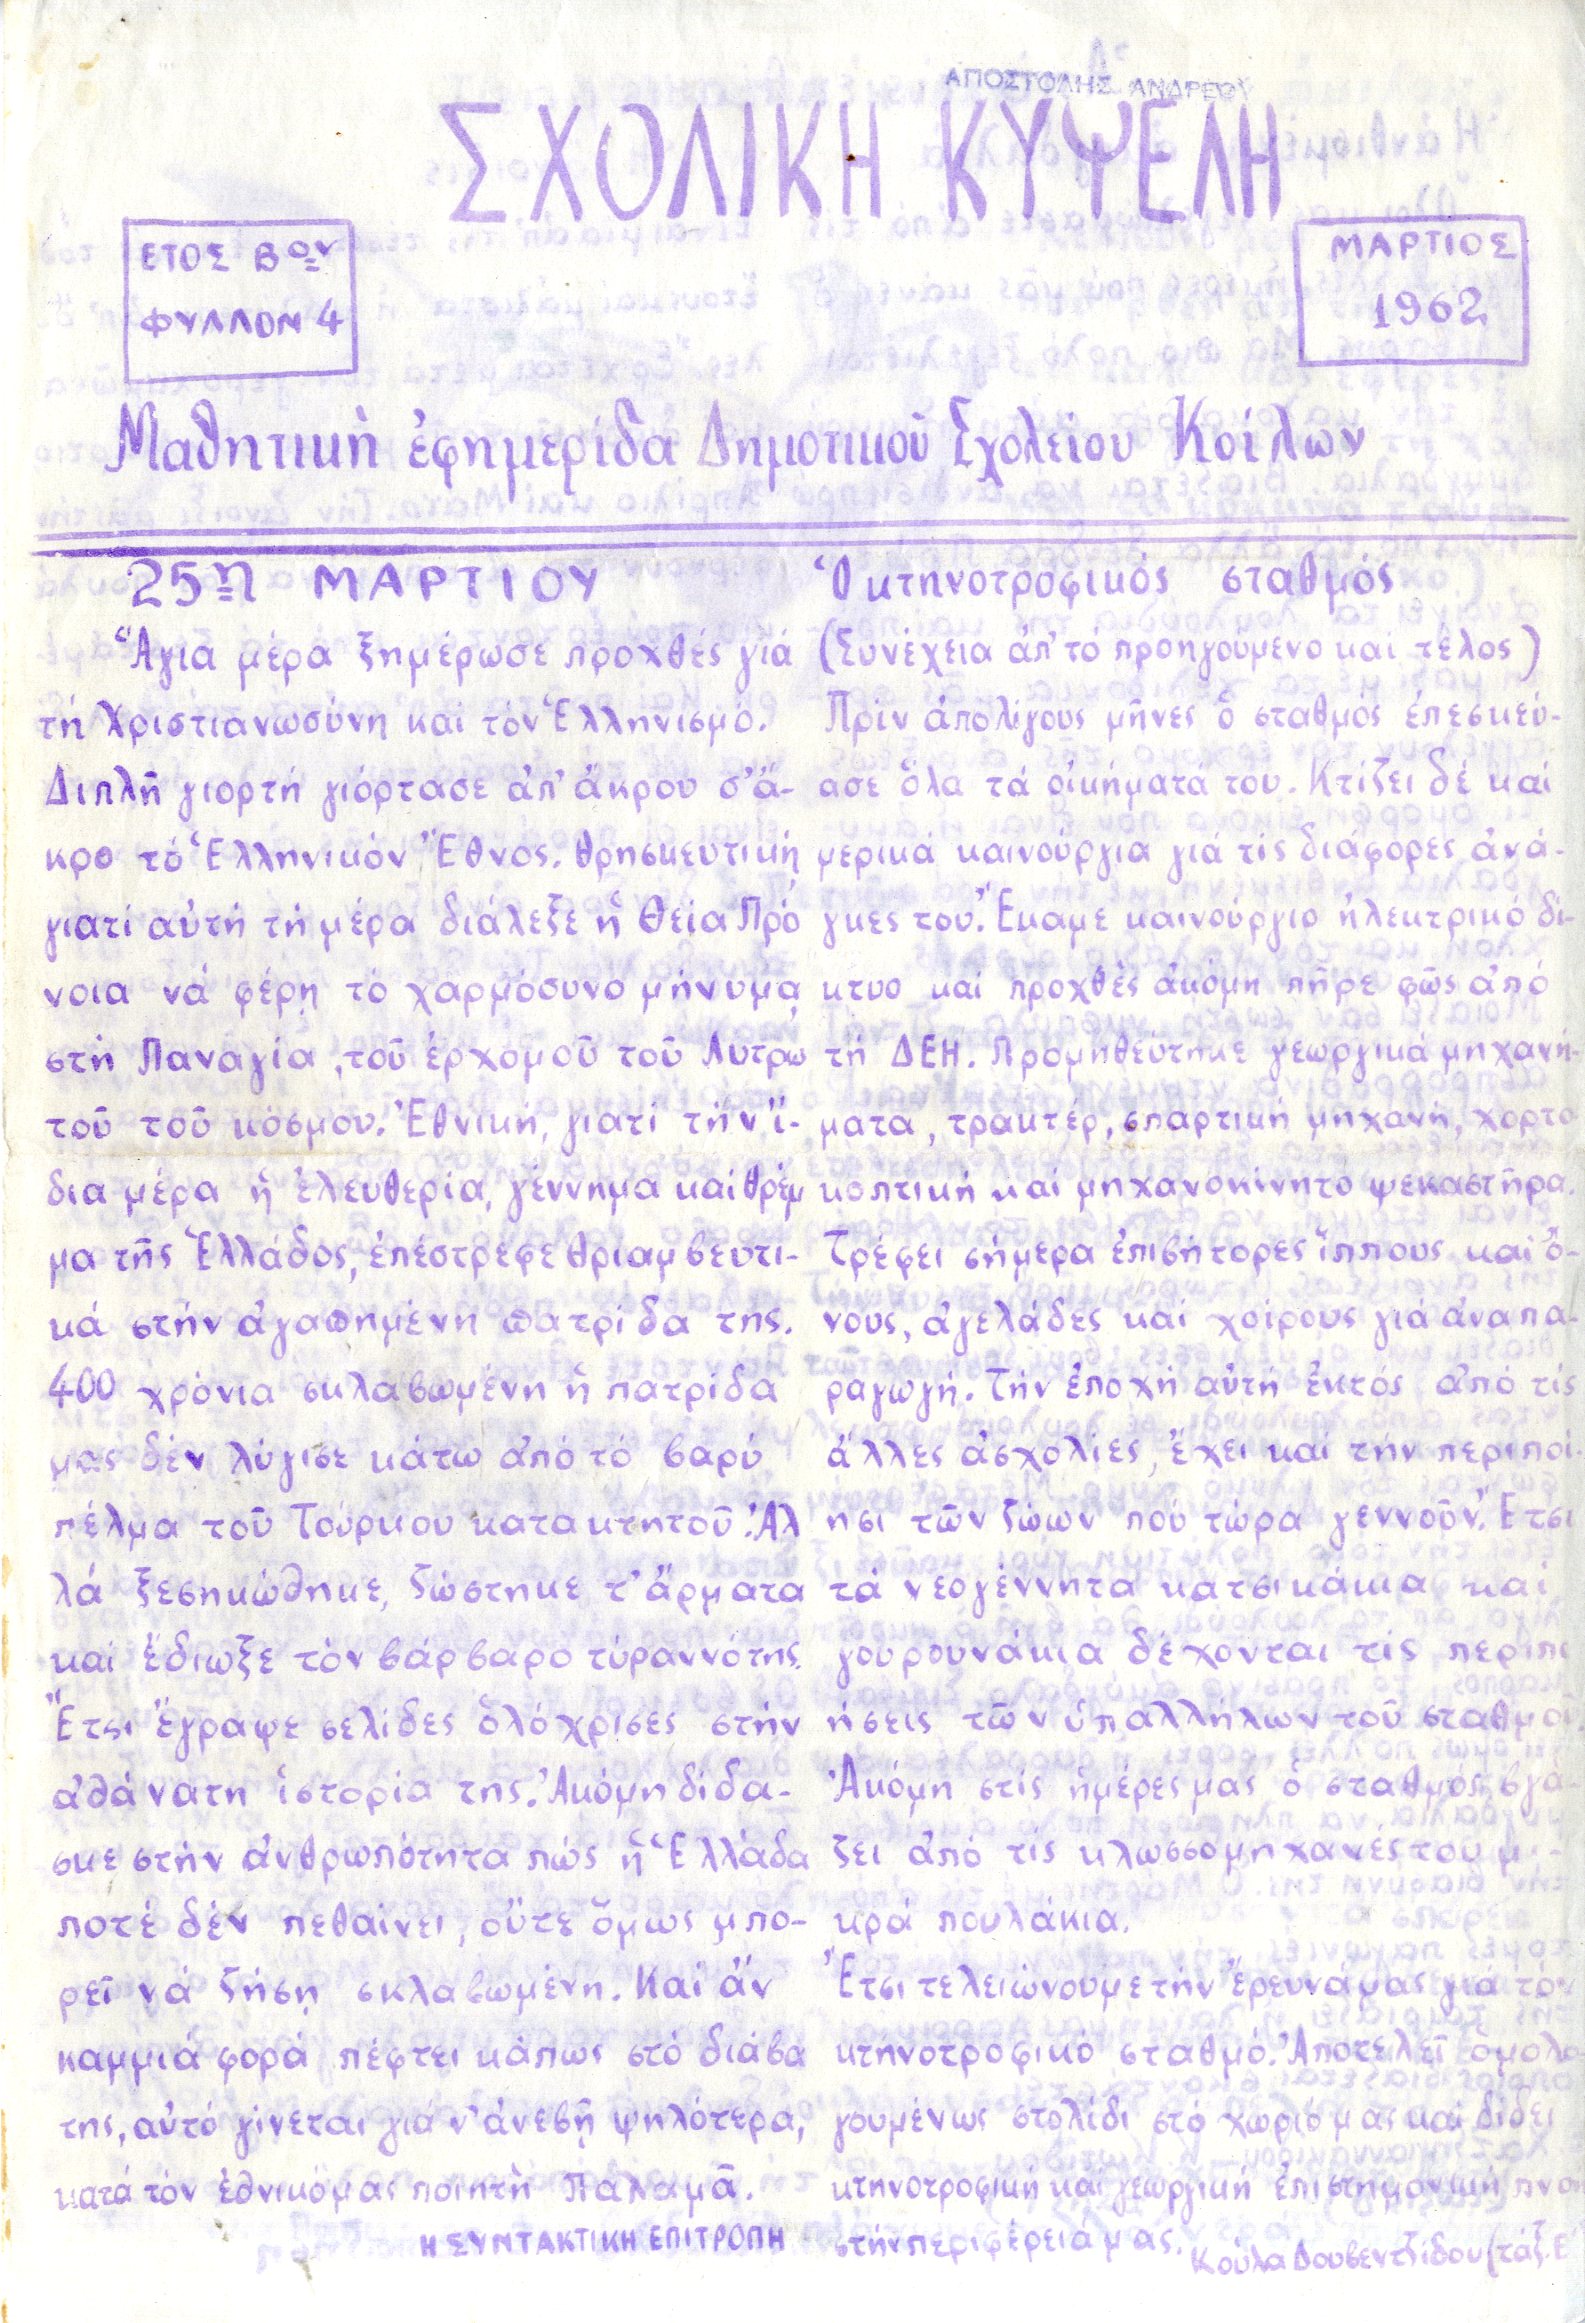 ΑΠΟΣΤΟΛΗΣ ΑΝΔΡΕΟΥ
ΣΧΟΛΙΚΗ ΚΥΨΕΛΗ
ΕΤΟΣ Βον
ΦΥΛΛΟΝ 4
ΜΑΡΤΙΟΣ
1962
Μαθητική ἐφημερίδα Δημοτικοῦ Σχολείου Κοίλων
25η ΜΑΡΤΙΟΥ
Ἅγια μέρα ξημέρωσε προχθές γιά
τή Χριστιανωσύνη καί τόν Ἑλληνισμό.
Διπλῆ γιορτή γιόρτασε ἀπ' ἄκρου σ' ἄ-
κρο τό Ἑλληνικόν Ἔθνος. Θρησκευτική
γιατί αὐτή τή μέρα διάλεξε ἡ Θεία Πρό
νοια νά φέρῃ τό χαρμόσυνο μήνυμα
στή Παναγία, τοῦ ἐρχομοῦ τοῦ Λυτρω
τοῦ τοῦ κόσμου. Ἐθνική, γιατί τήν ἴ-
δια μέρα ἡ ἐλευθερία, γέννημα καί θρέμ
μα τῆς Ἑλλάδος, ἐπέστρεφε θριαμβευτι-
κά στήν ἀγαπημένη πατρίδα της.
400 χρόνια σκλαβωμένη ἡ πατρίδα
μας δέν λύγισε κάτω ἀπό τό βαρύ
πέλμα τοῦ Τούρκου κατακτητοῦ. Ἀλ
λά ξεσηκώθηκε, ζώστηκε τ' ἄρματα
καί ἔδιωξε τόν βάρβαρο τύραννό της.
Ἔτσι ἔγραψε σελίδες ὁλόχρισες στήν
ἀθάνατη ἱστορία της. Ἀκόμη δίδα-
σκε στήν ἀνθρωπότητα πώς ἡ Ἑλλάδα
ποτέ δέν πεθαίνει, οὔτε ὅμως μπο-
ρεῖ νά ζήσῃ σκλαβωμένη. Καί ἄν
καμμιά φορά πέφτει κάπως στό διάβα
της, αὐτό γίνεται γιά ν' ἀνεβῇ ψηλότερα,
κατά τόν ἐθνικό μας ποιητή Παλαμᾶ.
Η ΣΥΝΤΑΚΤΙΚΗ ΕΠΙΤΡΟΠΗ
Ὁ κτηνοτροφικός σταθμός
(Συνέχεια ἀπ' τό προηγούμενο καί τέλος)
Πρίν ἀπολίγους μῆνες ὁ σταθμός ἐπεσκεύ-
ασε ὅλα τά οἰκήματά του. Κτίζει δέ καί
μερικά καινούργια γιά τίς διάφορες ἀνά-
γκες του. Ἔκαμε καινούργιο ἠλεκτρικό δί-
κτυο καί προχθές ἀκόμη πῆρε φῶς ἀπό
τή ΔΕΗ. Προμηθεύτηκε γεωργικά μηχανή-
ματα, τρακτέρ, σπαρτική μηχανή, χορτο
κοπτική καί μηχανοκίνητο ψεκαστῆρα.
Τρέφει σήμερα ἐπιβήτορες ἵππους καί ὄ-
νους, ἀγελάδες καί χοίρους γιά ἀναπα-
ραγωγή. Τήν ἐποχή αὐτή ἐκτός ἀπό τίς
ἄλλες ἀσχολίες, ἔχει καί τήν περιποί-
ησι τῶν ζώων πού τώρα γεννοῦν. Ἔτσι
τά νεογέννητα κατσικάκια καί
γουρουνάκια δέχονται τίς περιπι
ήσεις τῶν ὑπαλλήλων τοῦ σταθμοῦ.
Ἀκόμη στίς ἡμέρες μας ὁ σταθμός βγά-
ζει ἀπό τίς κλωσσομηχανές του μι-
κρά πουλάκια.
Ἔτσι τελειώνουμε τήν ἔρευνά μας γιά τόν
κτηνοτροφικό σταθμό. Ἀποτελεῖ ὁμολο
γουμένως στολίδι στό χωριό μας καί δίδει
κτηνοτροφική καί γεωργική ἐπιστημονική πνοή
στήν περιφέρειά μας.
Κούλα Δουβεντζίδου (τάξ. Ε